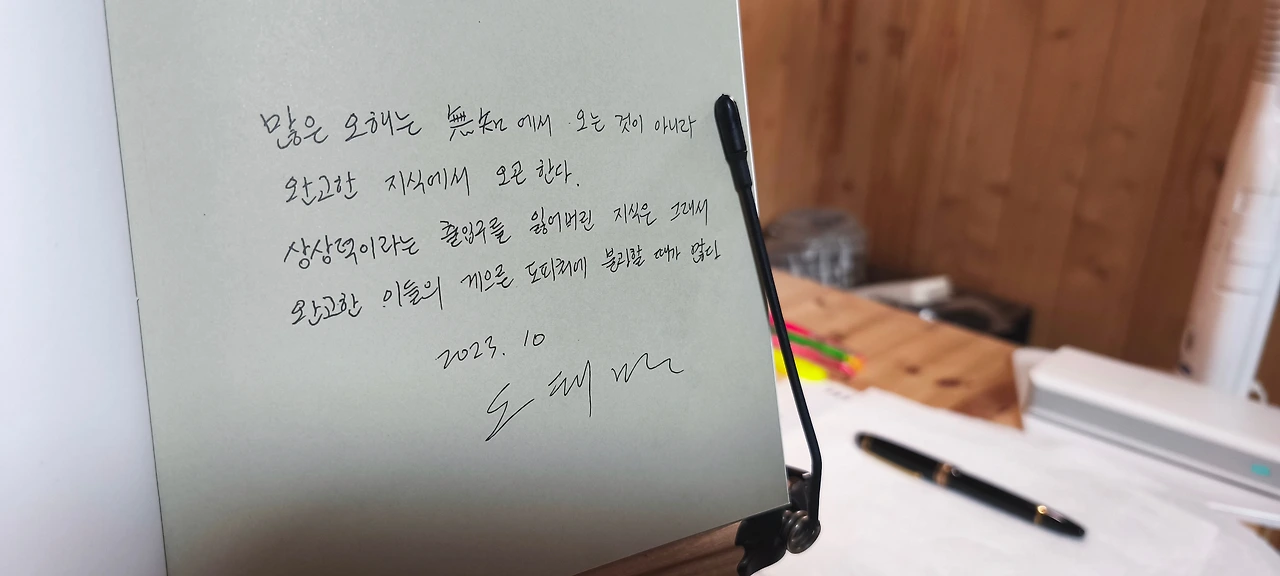 많은 오해는 無知에서 오는 것이 아니라
완고한 지식에서 오곤 한다.
상상력이라는 출입구를 잃어버린 지식은 그래서
완고한 이들의 게으른 도피처에 불과할 때가 많다
2023. 10
도태